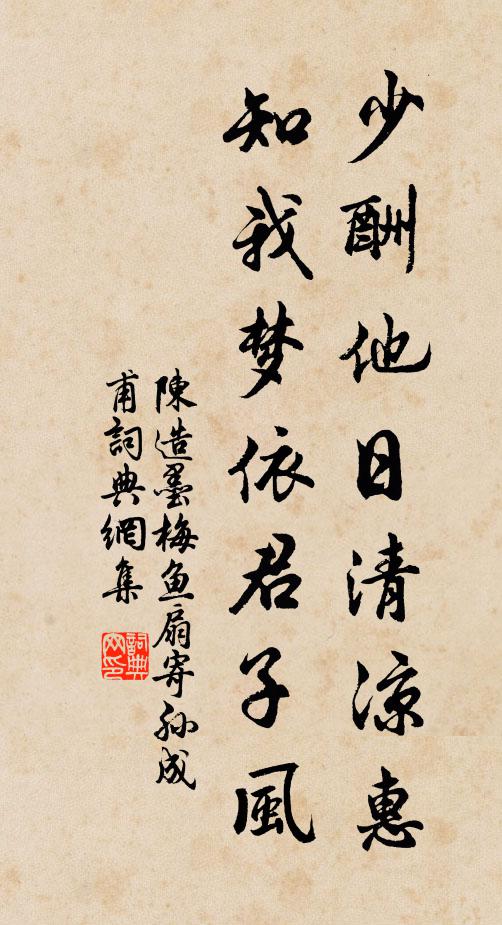 少酬他日清涼惠
知我梦依君子風
陳造墨梅魚扇寄孙成
甫詞典網集
詞典
网印